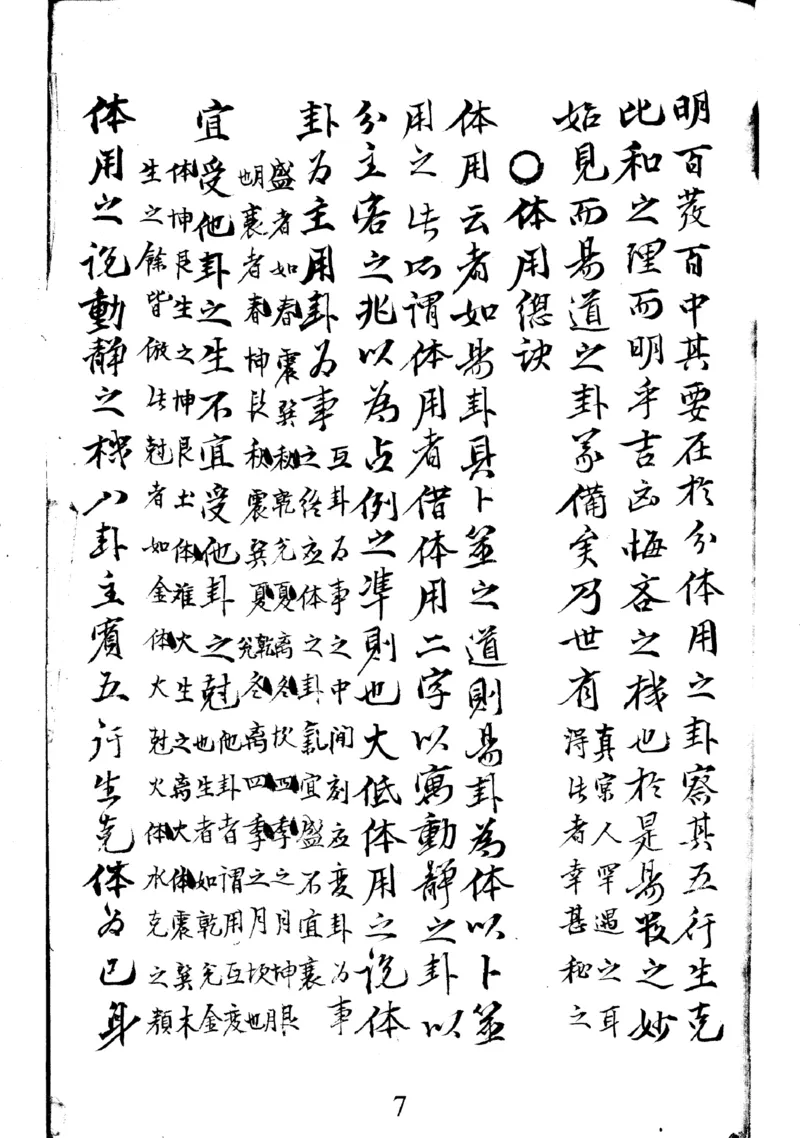 明百發百中其要在於分体用之卦察其五行生克
比和之理而明乎吉凶悔吝之機也於是易数之妙
始見而易道之卦義備矣乃世有真宗人罕遇之耳
得此者幸甚秘之
○体用總訣
体用云者如易卦具卜筮之道則易卦為体以卜筮
用之此所謂体用者借体用二字以寓動靜之卦以
分主客之兆以為占例之準則也大低体用之说体
卦为主用卦为事互卦为事之中間刻应变卦为事
之终应体之卦氣宜盛不宜衰
盛者如春震巽秋乾兑夏离冬坎四季之月坤艮
也衰者春坤艮秋震巽夏兑乾冬离四季之月坎也
宜受他卦之生不宜受他卦之尅他卦者谓用互变
也生者如乾兑金
体坤艮生之坤艮土体離火生之离火体震巽木
生之餘皆倣此尅者如金体火尅火体水克之類
体用之说動靜之機八卦主賓五行生克体为己身
7